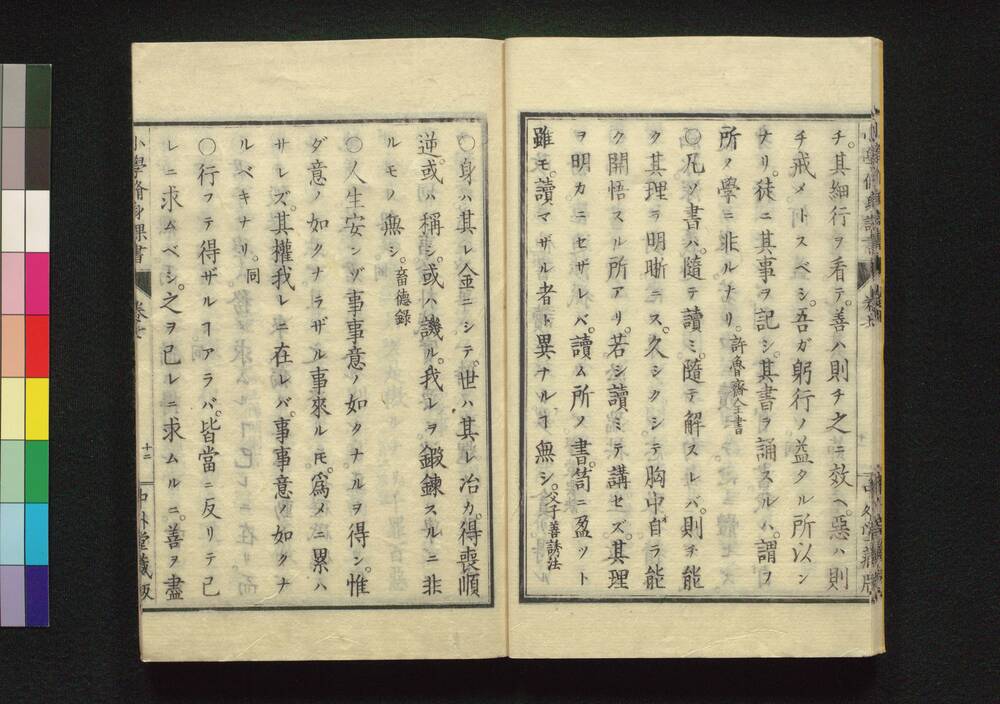 チ。其細行ヲ看テ。善ハ則チ之ニ效ヘ。惡ハ則
チ戒メトスベシ。吾ガ躬行ノ益タル所以ン
ナリ。徒ニ其事ヲ記シ。其書ヲ誦スルハ。謂フ
所ノ學ニ非ルナリ。許魯齋全書
〇凡ソ書ハ。隨テ讀ミ。隨テ解スレバ。則チ能
ク其理ヲ明晰ニス。久シクシテ胸中自ラ能
ク開悟スル所アリ。若シ讀ミテ講セズ。其理
ヲ明カニセザレバ。讀ム所ノ書笥ニ盈ツト
雖モ。讀マザル者ト異ナルヿ無シ。父子善誘法
〇身ハ其レ金ニシテ。世ハ其レ冶カ。得喪順
逆。或ハ稱シ。或ハ譏ル。我レヲ鍛鍊スルニ非
ルモノ無シ。畜德錄
〇人生安ンゾ事事意ノ如クナルヲ得ン。惟
ダ意ノ如クナラザル事來ルモ。爲メニ累ハ
サレズ。其權我レニ在レバ。事事意ノ如クナ
ルベキナリ。同
〇行フテ得ザルヿアラバ。皆當ニ反リテ己
レニ求ムベシ。之ヲ己レニ求ムルニ。善ヲ盡
小學脩身課書 卷六 十二 中外堂藏版